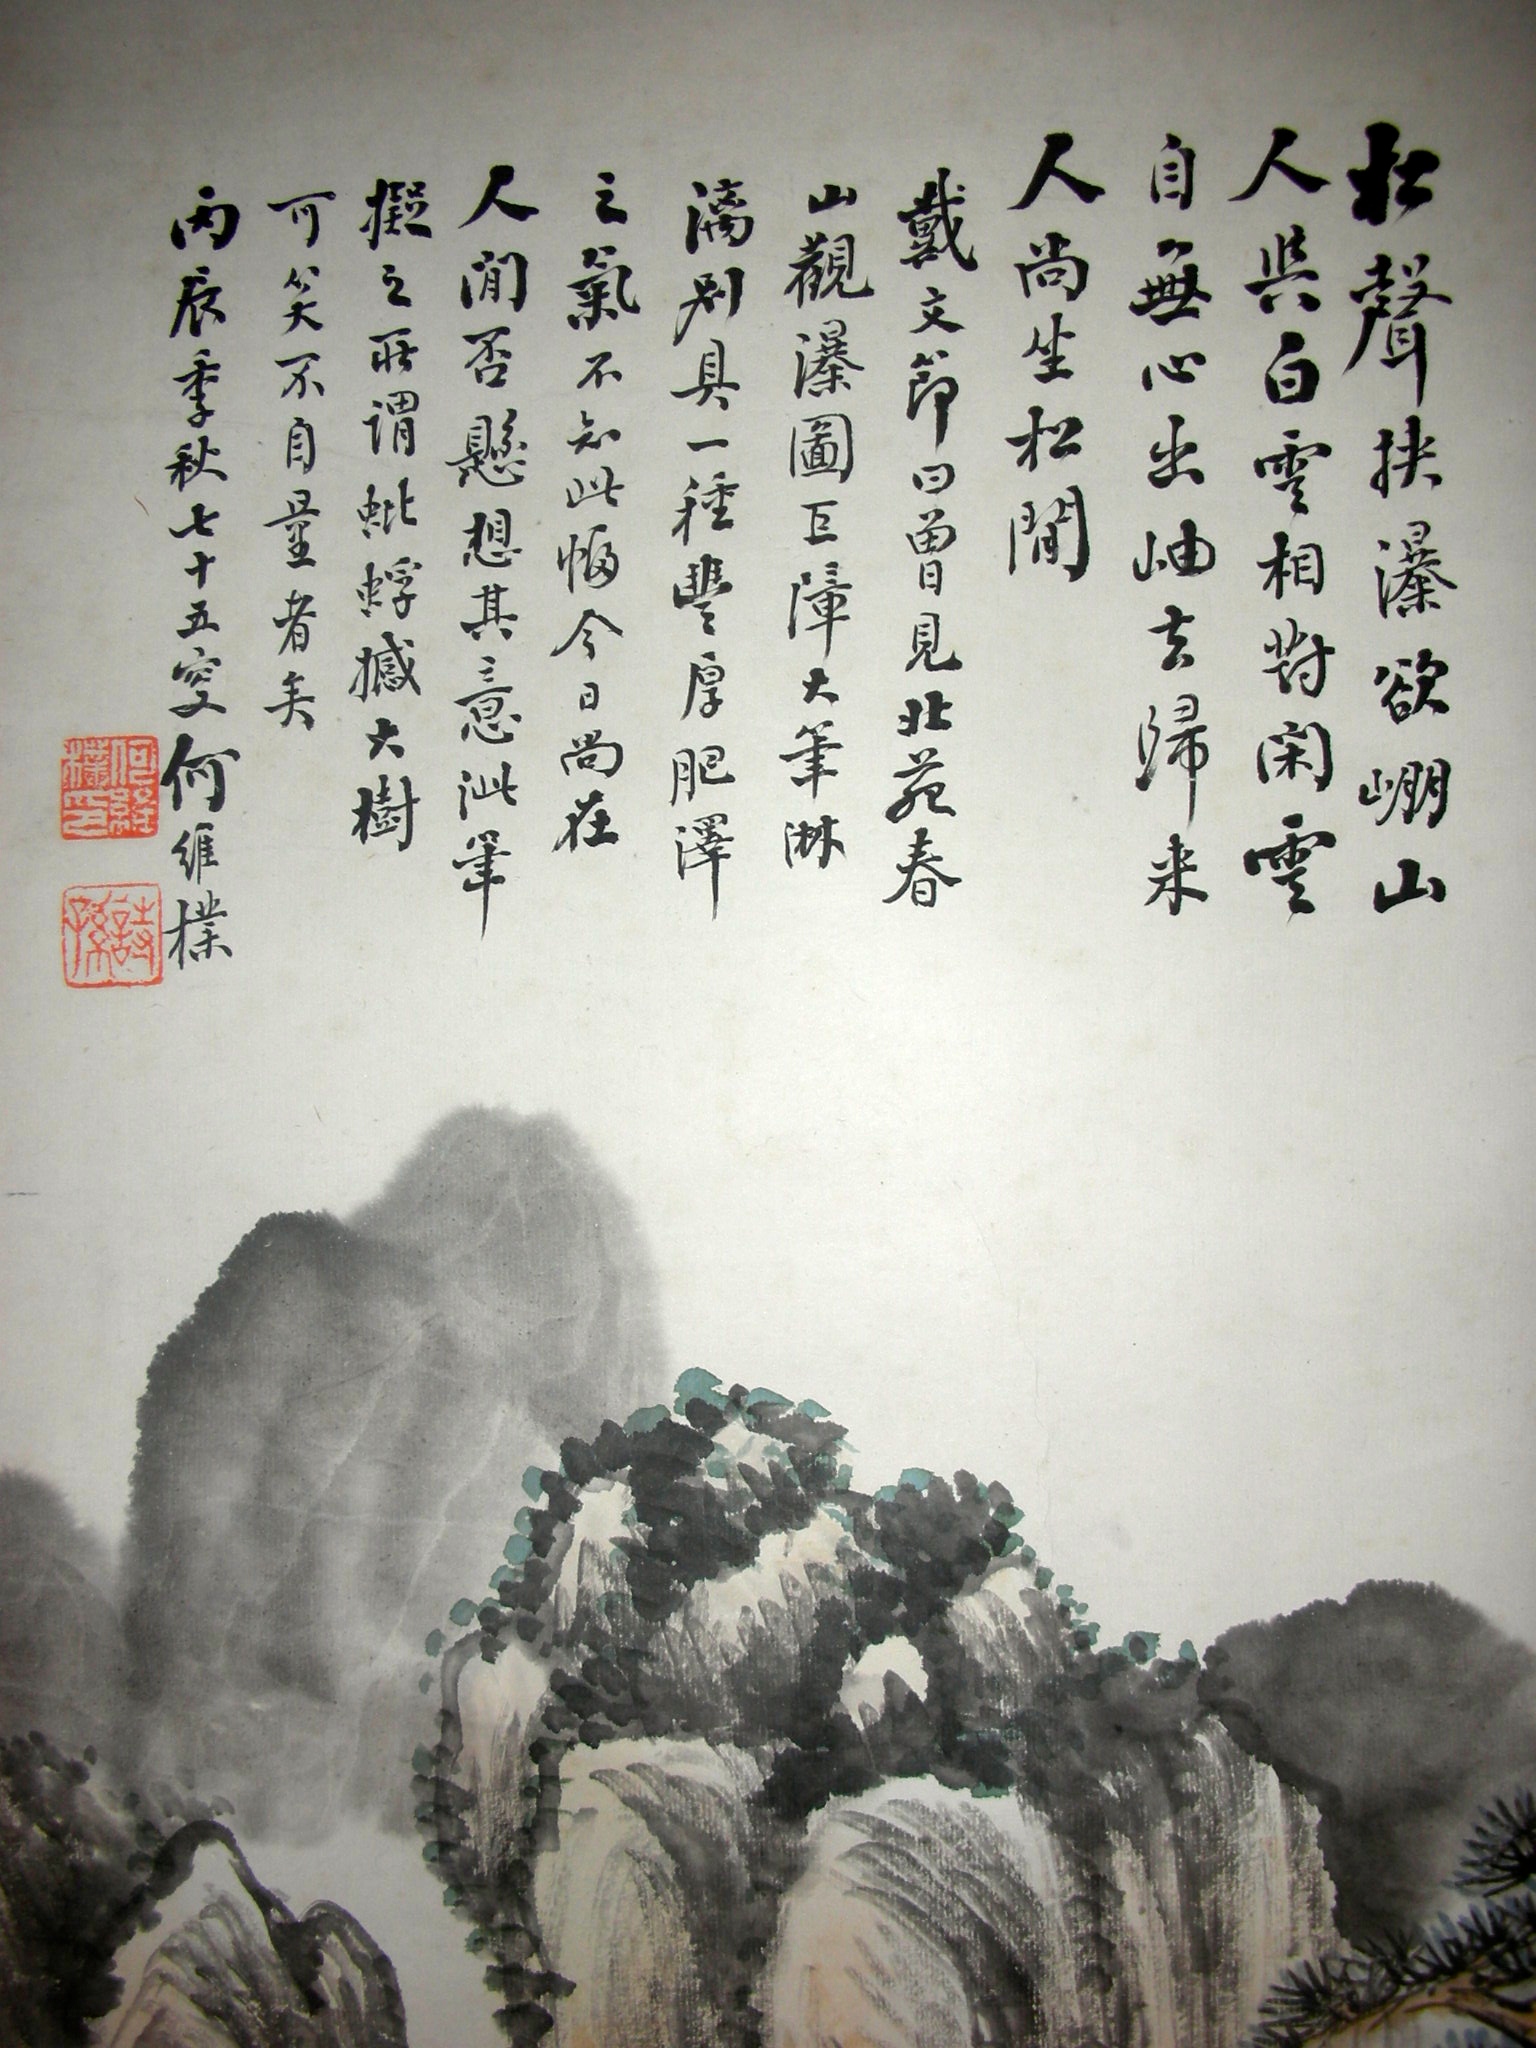 松聲挾瀑欲崩山
人與白雲相對閑雲
自無心出岫去歸来
人尚坐松間
戴文節曰曾見北苑春
山觀瀑圖巨障大筆淋
漓別具一種豐厚肥澤
之氣不知此幅今日尚在
人間否懸想其意泚筆
擬之所謂蚍蜉撼大樹
可笑不自量者矣
丙辰季秋七十五叟何維樸
何維樸印
詩孫